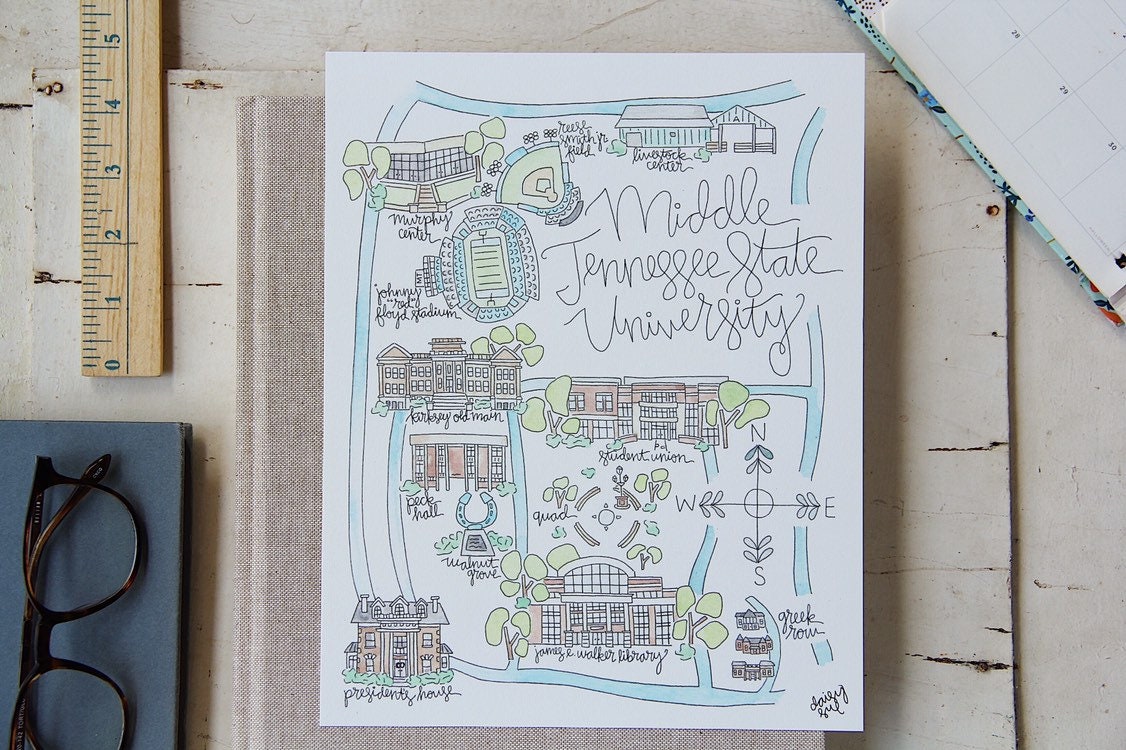 5
4
3
2
1
0
28
29
30
reese
smith jr.
field
livestock
center
murphy
center
Middle
Tennessee State
University
johnny
"red"
floyd stadium
kirksey old main
student union
N
W
E
S
peck
hall
quad
walnut
grove
greek
row
james e. walker library
president's house